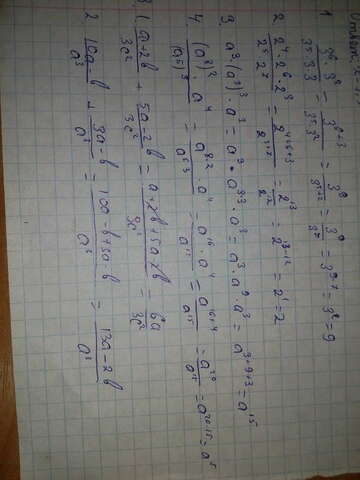 1 3⁶·3³/3⁵·3·3 = 3⁶⁺³/3⁵·3² = 3⁹/3⁵⁺² = 3⁹/3⁷ = 3⁹⁻⁷ = 3² = 9
2 2⁴·2⁶·2³/2⁵·2⁷ = 2⁴⁺⁶⁺³/2⁵⁺⁷ = 2¹³/2¹² = 2¹³⁻¹² = 2¹ = 2
3. a³·(a³)³·a³ = a³·a³·³·a³ = a³·a⁹·a³ = a³⁺⁹⁺³ = a¹⁵
4. (a⁸)²·a⁴/(a⁵)³ = a⁸·²·a⁴/a⁵·³ = a¹⁶·a⁴/a¹⁵ = a¹⁶⁺⁴/a¹⁵ = a²⁰/a¹⁵ = a²⁰⁻¹⁵ = a⁵
3 1. a+2b/3c² + 5a-2b/3c² = a+2b+5a-2b/3c² = 6a/3c²
2 10a-b/a² + 3a-b/a² = 10a-b+3a-b/a² = 13a-2b/a²